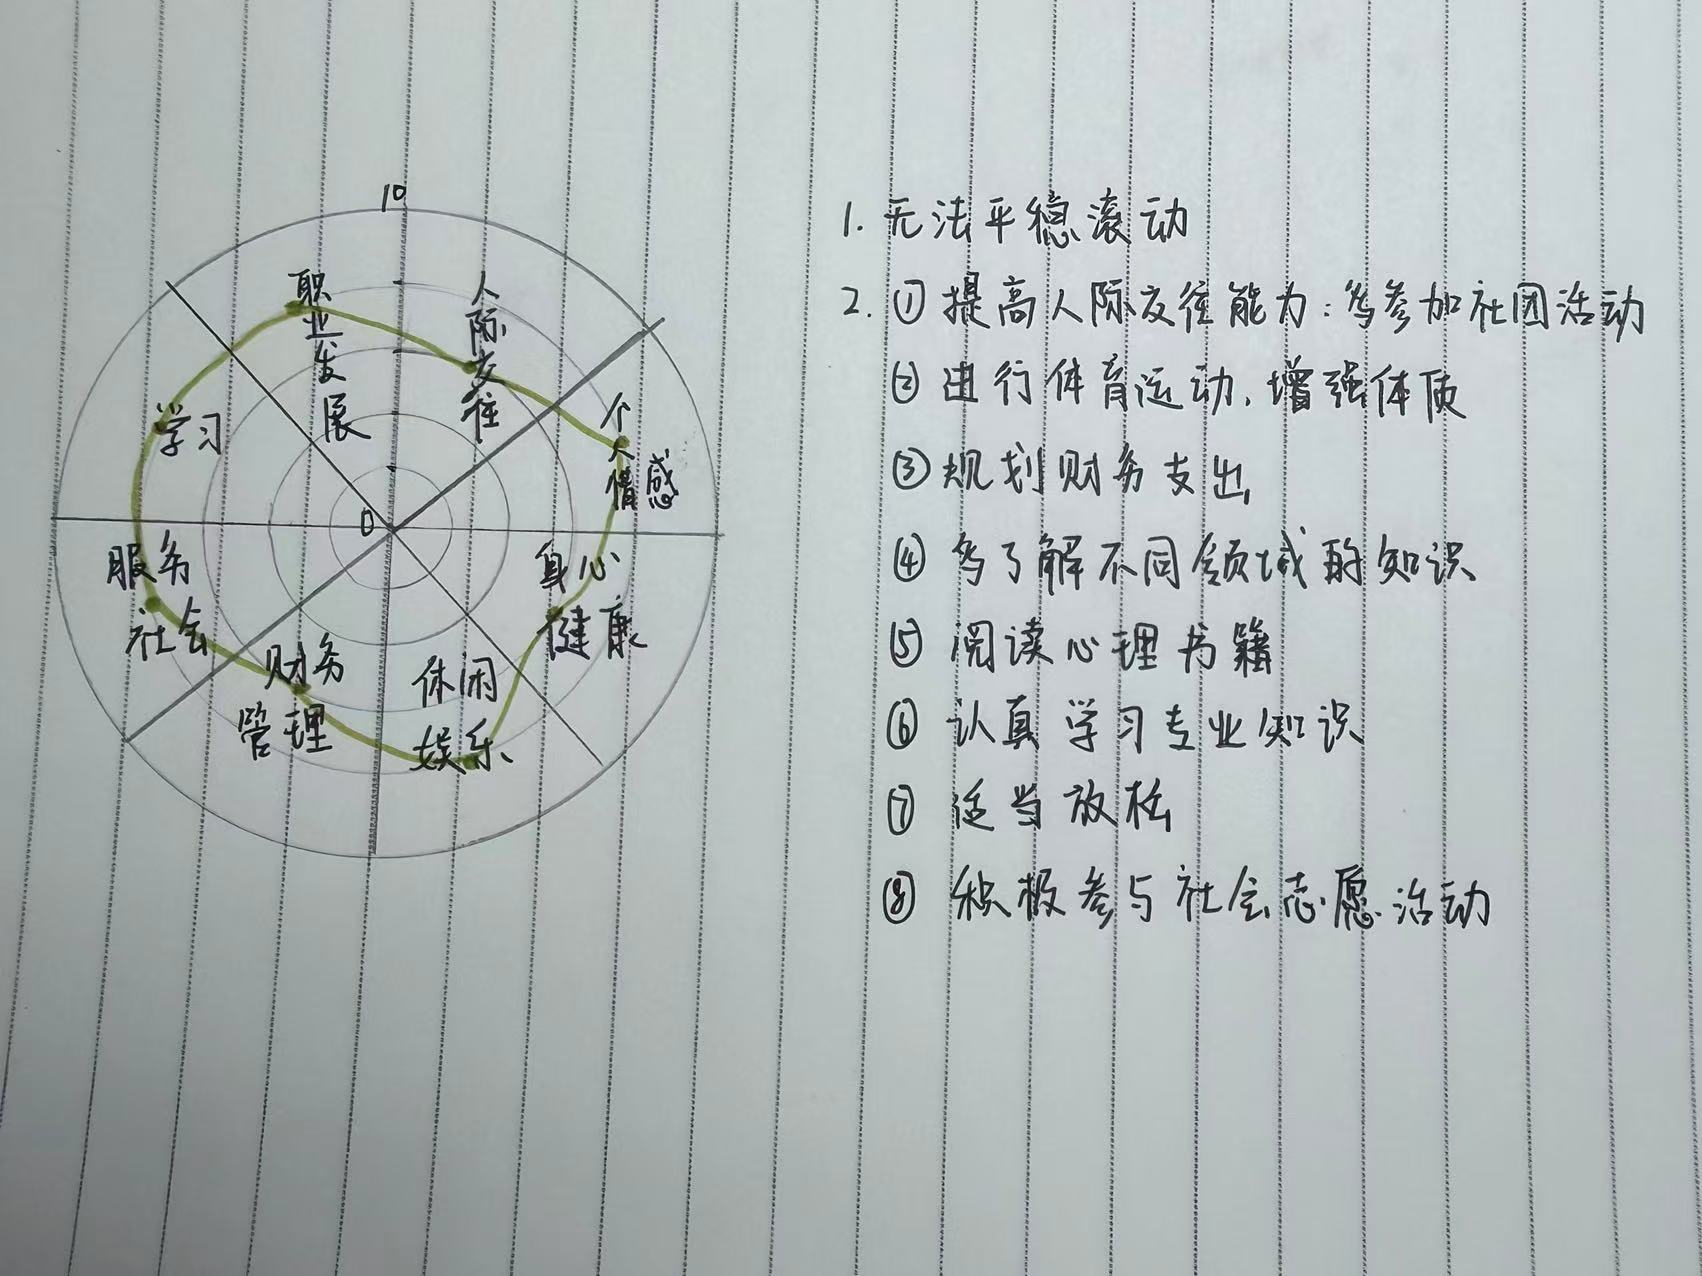 10
职业发展
人际交往
个人情感
学习
0
服务
社会
身心
健康
财务
管理
休闲
娱乐
1. 无法平稳滚动
2. ① 提高人际交往能力：多参加社团活动
② 进行体育运动，增强体质
③ 规划财务支出
④ 多了解不同领域的知识
⑤ 阅读心理书籍
⑥ 认真学习专业知识
⑦ 适当放松
⑧ 积极参与社会志愿活动